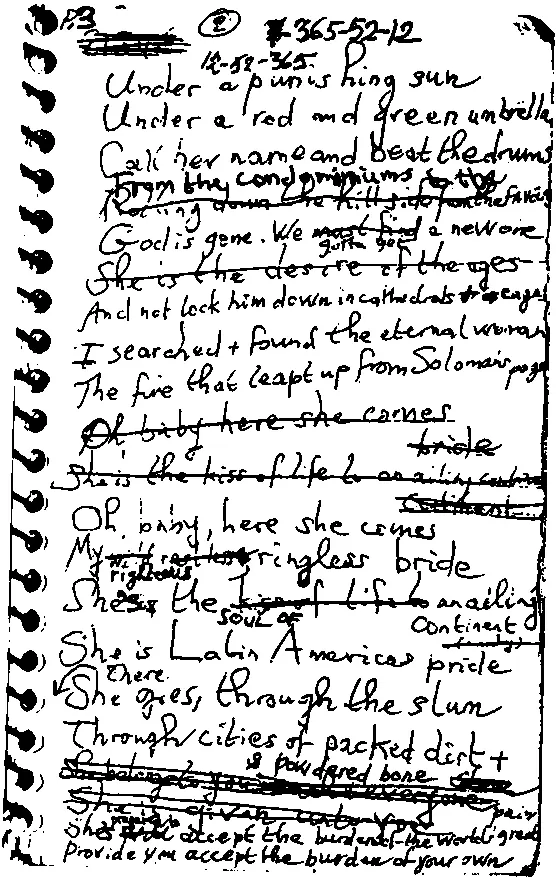 P.3 ② 365-52-12
12-52-365
Under a punishing sun
Under a red and green umbrella
Call her name and beat the drums
From the condominiums to the
Rolling down the hillside from the favelas
God is gone. We must find a new one
gotta get
She is the desire of the ages
And not lock him down in cathedrals + cages
I searched + found the eternal woman
The fire that leapt up from Solomon's page
Oh baby here she comes
bride
She is the kiss of life to an ailing
continent
Oh, baby, here she comes
My ringless bride
righteous
She is the kiss of life to an ailing
soul of
continent
She is Latin Americas pride
There
She goes, through the slum
Through cities of packed dirt +
& powdered bone
She belongs to you everyone
She is given unto you pain
She accept the burden of the world's great
Provide you accept the burden of your own